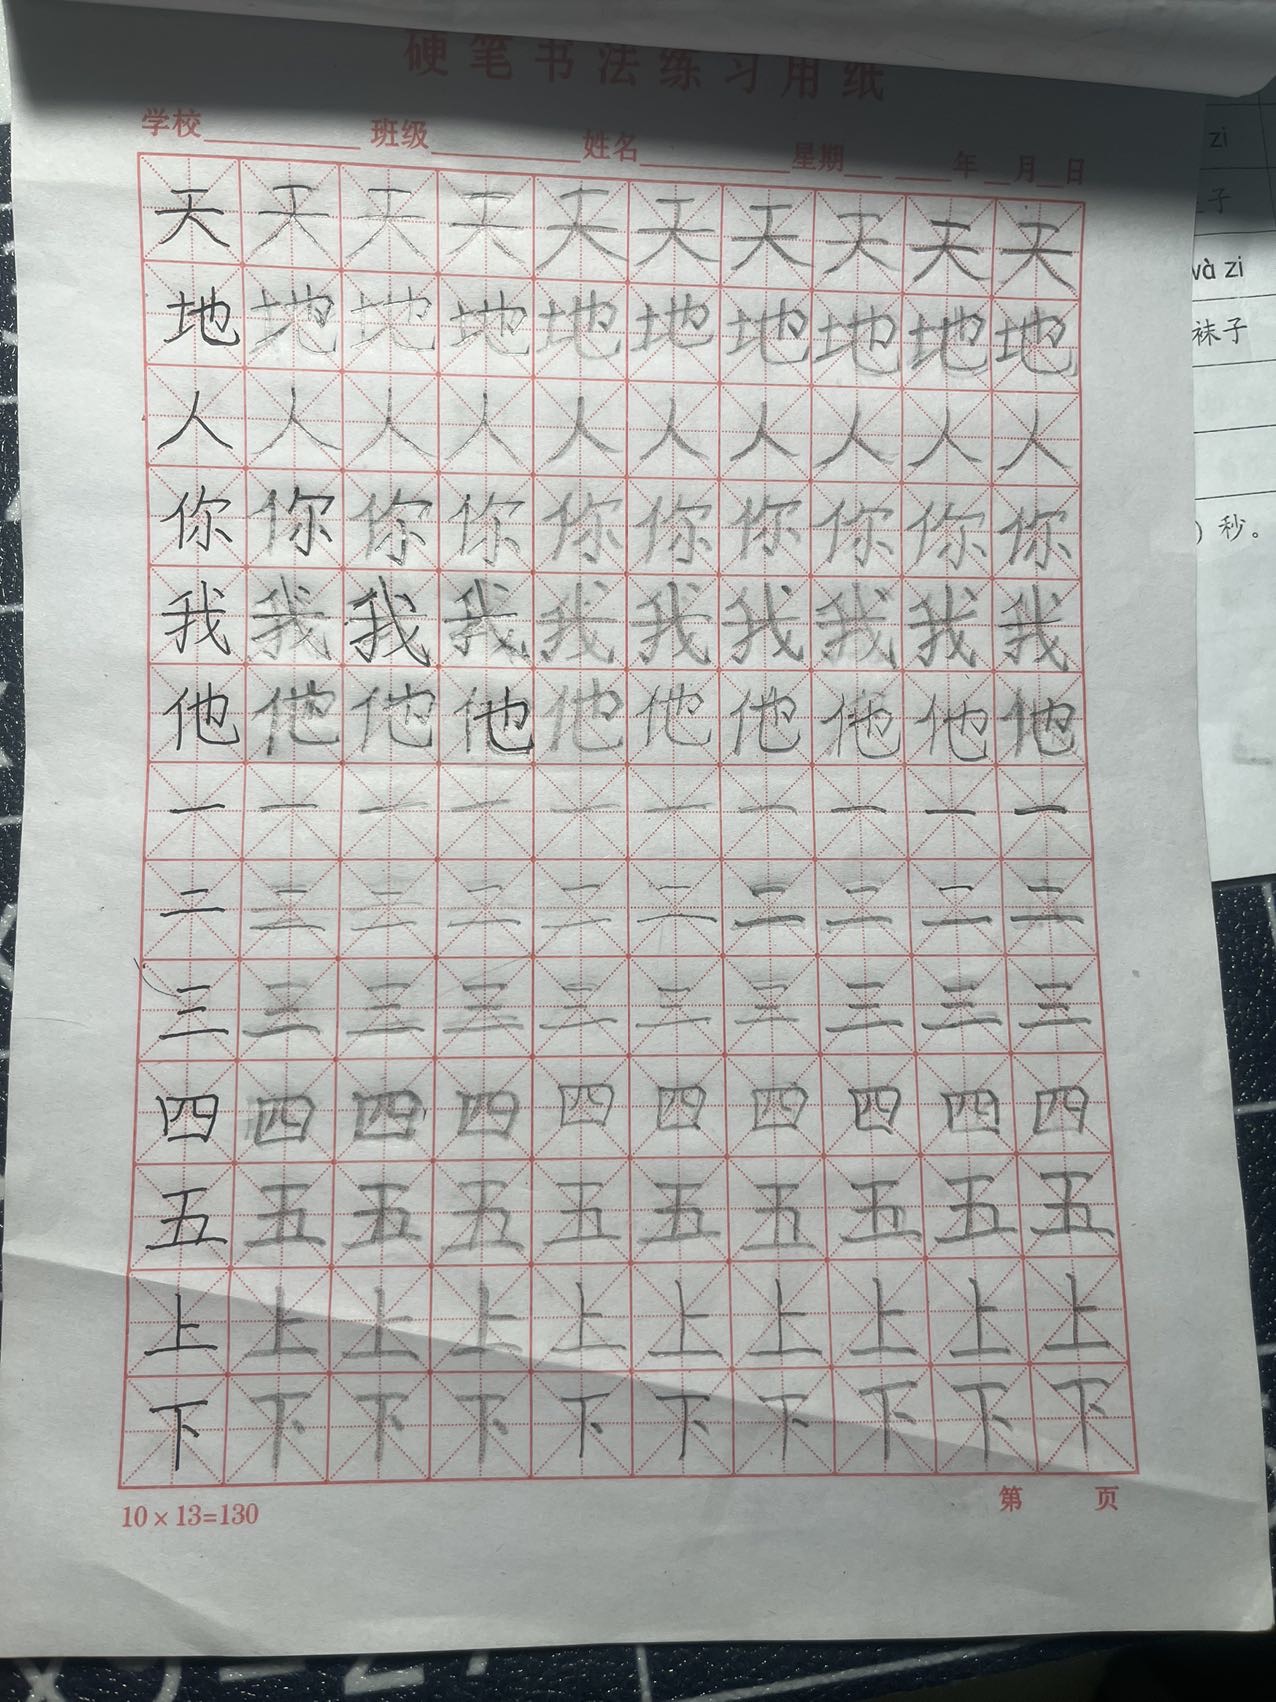 硬笔书法练习用纸
学校 班级 姓名 星期 年 月 日
天天天天天天天天天天
地地地地地地地地地地
人人人人人人人人人人
你你你你你你你你你你
我我我我我我我我我我
他他他他他他他他他他
一一一一一一一一一一
二二二二二二二二二二
三三三三三三三三三三
四四四四四四四四四四
五五五五五五五五五五
上上上上上上上上上上
下下下下下下下下下下
10×13=130
第 页
zi
子
wà zi
袜子
) 秒。